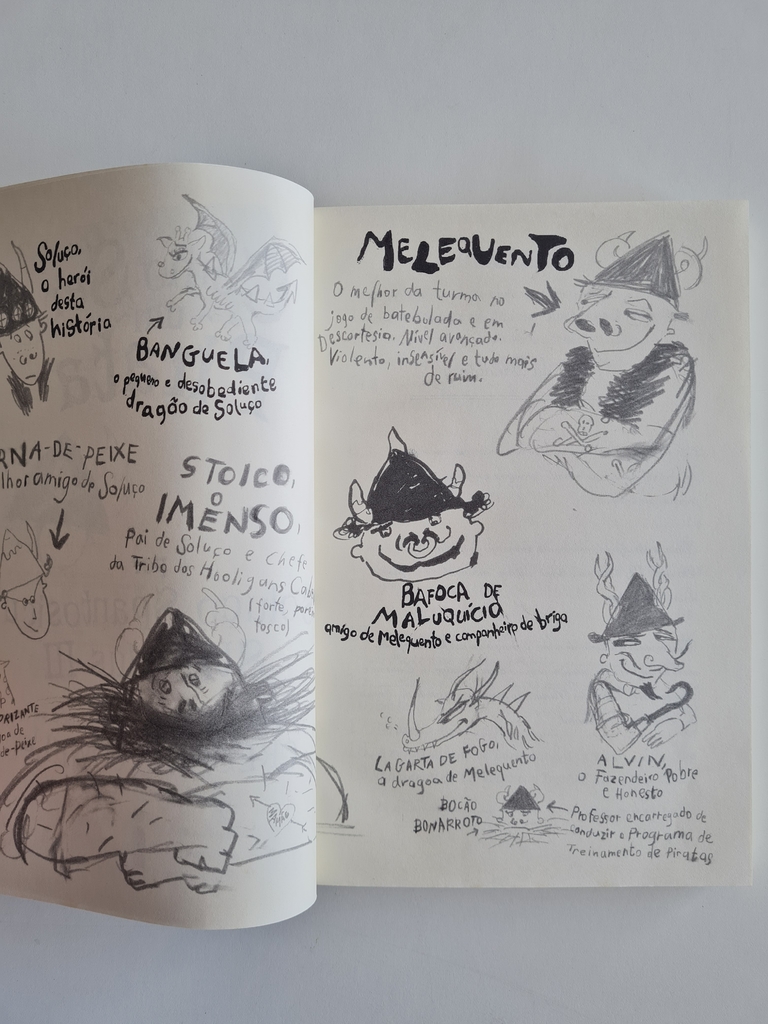 Soluço,
o herói
desta
história
BANGUELA,
o pequeno e desobediente
dragão de Soluço
RNA-DE-PEIXE
lhor amigo de Soluço
STOICO,
O
IMENSO,
pai de Soluço e chefe
da Tribo dos Hooligans Cab
(forte, por
tosco)
ORIZANTE
oa de
de-peixe
MELEQUENTO
O melhor da turma no
jogo de batebolada e em
Descortesia. Nível avançado.
Violento, insensível e tudo mais
de ruim.
BAFOCA DE
MALUQUÍCIO
amigo de Melequento e companheiro de briga
LAGARTA DE FOGO,
a dragoa de Melequento
ALVIN,
o Fazendeiro Pobre
e Honesto
BOCÃO
BONARROTO
Professor encarregado de
conduzir o Programa de
Treinamento de Piratas